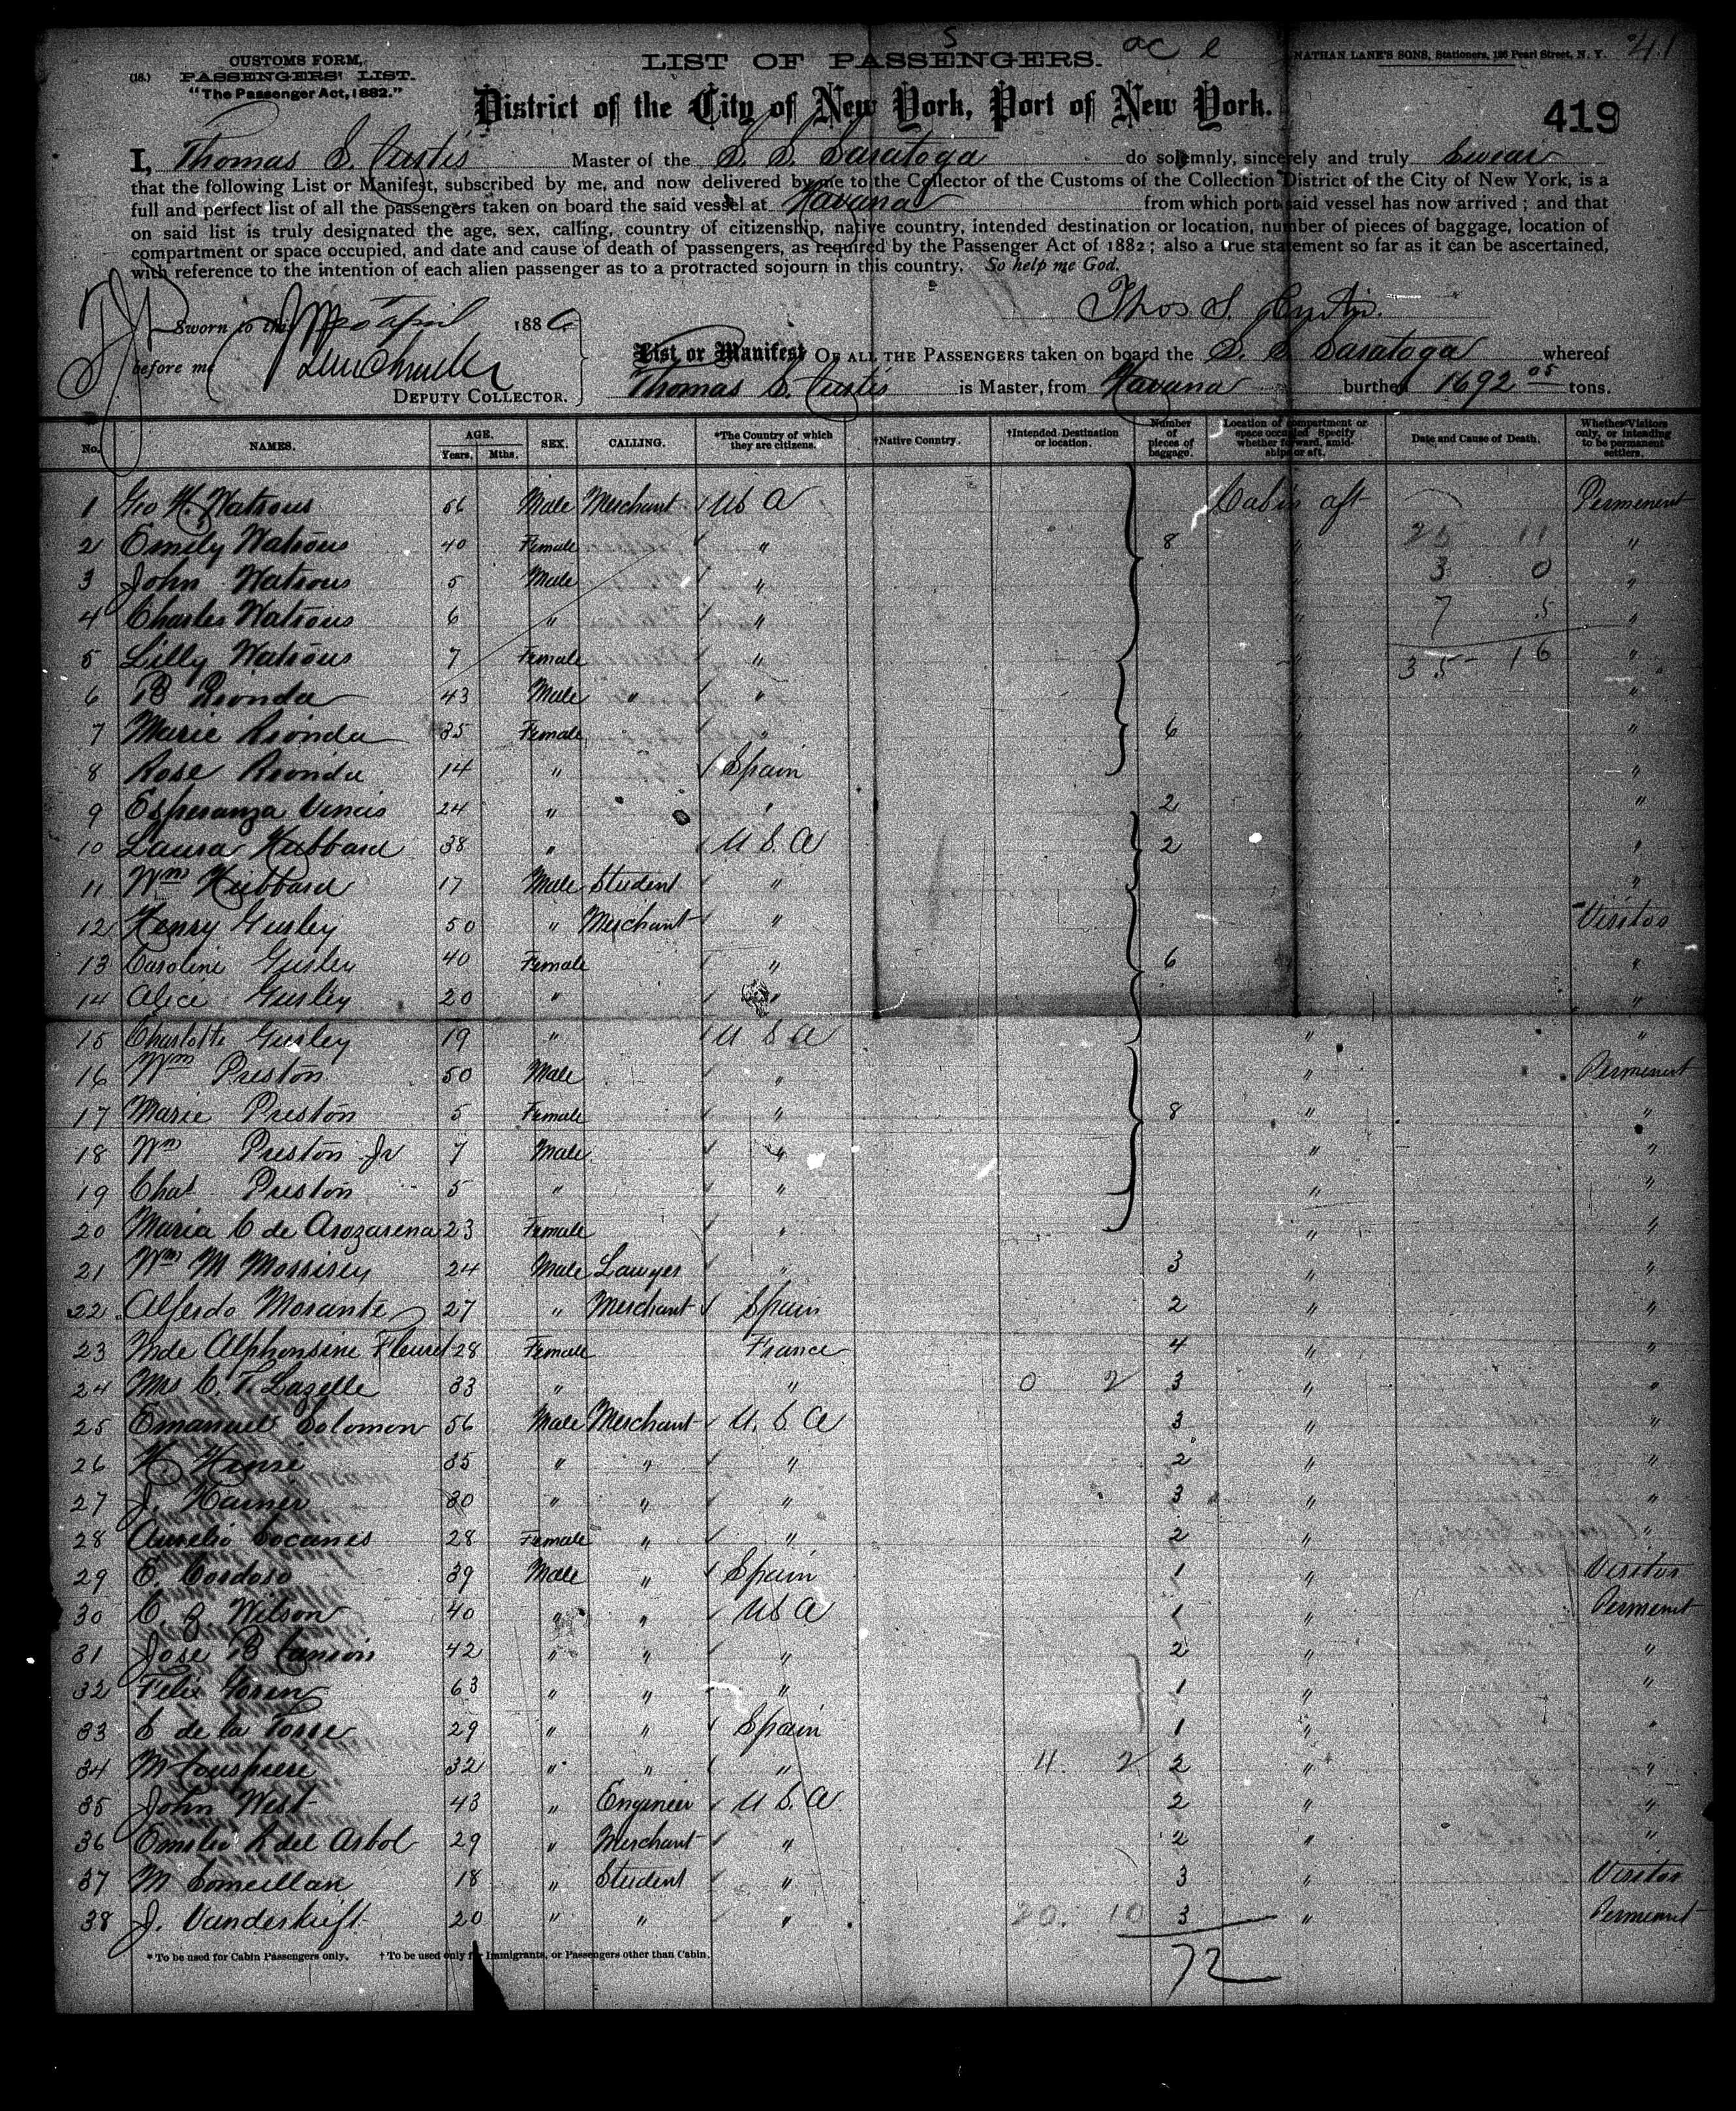 CUSTOMS FORM,
(18.) PASSENGERS' LIST.
"The Passenger Act, 1882."
LIST OF PASSENGERS.
NATHAN LANE'S SONS, Stationers, 136 Pearl Street, N. Y.
District of the City of New York, Port of New York.
419
I, Thomas S. Curtis Master of the S. S. Saratoga do solemnly, sincerely and truly Swear
that the following List or Manifest, subscribed by me, and now delivered by me to the Collector of the Customs of the Collection District of the City of New York, is a
full and perfect list of all the passengers taken on board the said vessel at Havana from which port said vessel has now arrived; and that
on said list is truly designated the age, sex, calling, country of citizenship, native country, intended destination or location, number of pieces of baggage, location of
compartment or space occupied, and date and cause of death of passengers, as required by the Passenger Act of 1882; also a true statement so far as it can be ascertained,
with reference to the intention of each alien passenger as to a protracted sojourn in this country. So help me God.
Thos S. Curtis.
Sworn to this April 188
before me
DEPUTY COLLECTOR.
List or Manifest OF ALL THE PASSENGERS taken on board the S. S. Saratoga whereof
Thomas S. Curtis is Master, from Havana burthen 1692 05 tons.
No. NAMES. AGE. Years. Mths. SEX. CALLING. *The Country of which they are citizens. †Native Country. †Intended Destination or location. Number of pieces of baggage. Location of compartment or space occupied. Specify whether forward, amidships or aft. Date and Cause of Death. Whether Visitors only, or intending to be permanent settlers.
1 Geo H. Watrous 56 Male Merchant U S A Cabin aft Permenent
2 Emily Watrous 40 Female " 8 " 25 11 "
3 John Watrous 5 Male " " 3 0 "
4 Charles Watrous 6 " " " 7 5 "
5 Lilly Watrous 7 Female " " 35 16 "
6 B Rionda 43 Male " " "
7 Marie Rionda 35 Female " 6 " "
8 Rose Rionda 14 " Spain " "
9 Esperanza 24 " " 2 "
10 Laura Hubbard 38 " U S. A 2 "
11 Wm Hubbard 17 Male Student " " "
12 Henry Gurley 50 " Merchant " Visitor
13 Caroline Gurley 40 Female " 6 "
14 Alice Gurley 20 " " "
15 Charlotte Gurley 19 " U S A " "
16 Wm Preston 50 Male " " Permenent
17 Marie Preston 5 Female " 8 " "
18 Wm Preston Jr 7 Male " " "
19 Chas Preston 5 " " " "
20 Maria C de Arozarena 23 Female " " "
21 Wm M Morrisey 24 Male Lawyer " 3 " "
22 Alferdo Morante 27 " Merchant Spain 2 " "
23 Mde Alphonsine Fleuret 28 Female France 4 " "
24 Mrs C. T. Lazelle 33 " " 0 2 3 " "
25 Emanuel Solomon 56 Male Merchant U. S. A 3 " "
26 H Henri 35 " " " 2 " "
27 J. Harner 30 " " " 3 " "
28 Aurelio Socanes 28 Female " " 2 " "
29 E. Cordoso 39 Male " Spain 1 " Visitor
30 C. Wilson 40 " " U S A 1 " Permenit
31 Jose B 42 " " " 2 " "
32 Felix 63 " " " 1 " "
33 de la Torre 29 " " Spain 1 " "
34 M 32 " " " 4 2 2 " "
35 John West 43 " Engineer U S. A 2 " "
36 Emilio del Arbol 29 " Merchant " 2 " "
37 M 18 " Student " 3 " Visitor
38 J. Vanderkift 20 " " " 20. 10 3 " Permenant
72
* To be used for Cabin Passengers only. † To be used only for Immigrants, or Passengers other than Cabin.